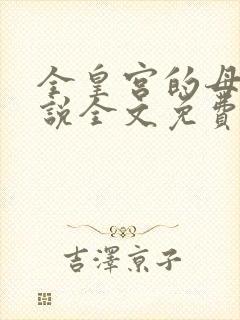 全皇宮的母
說全文免費
吉澤京子